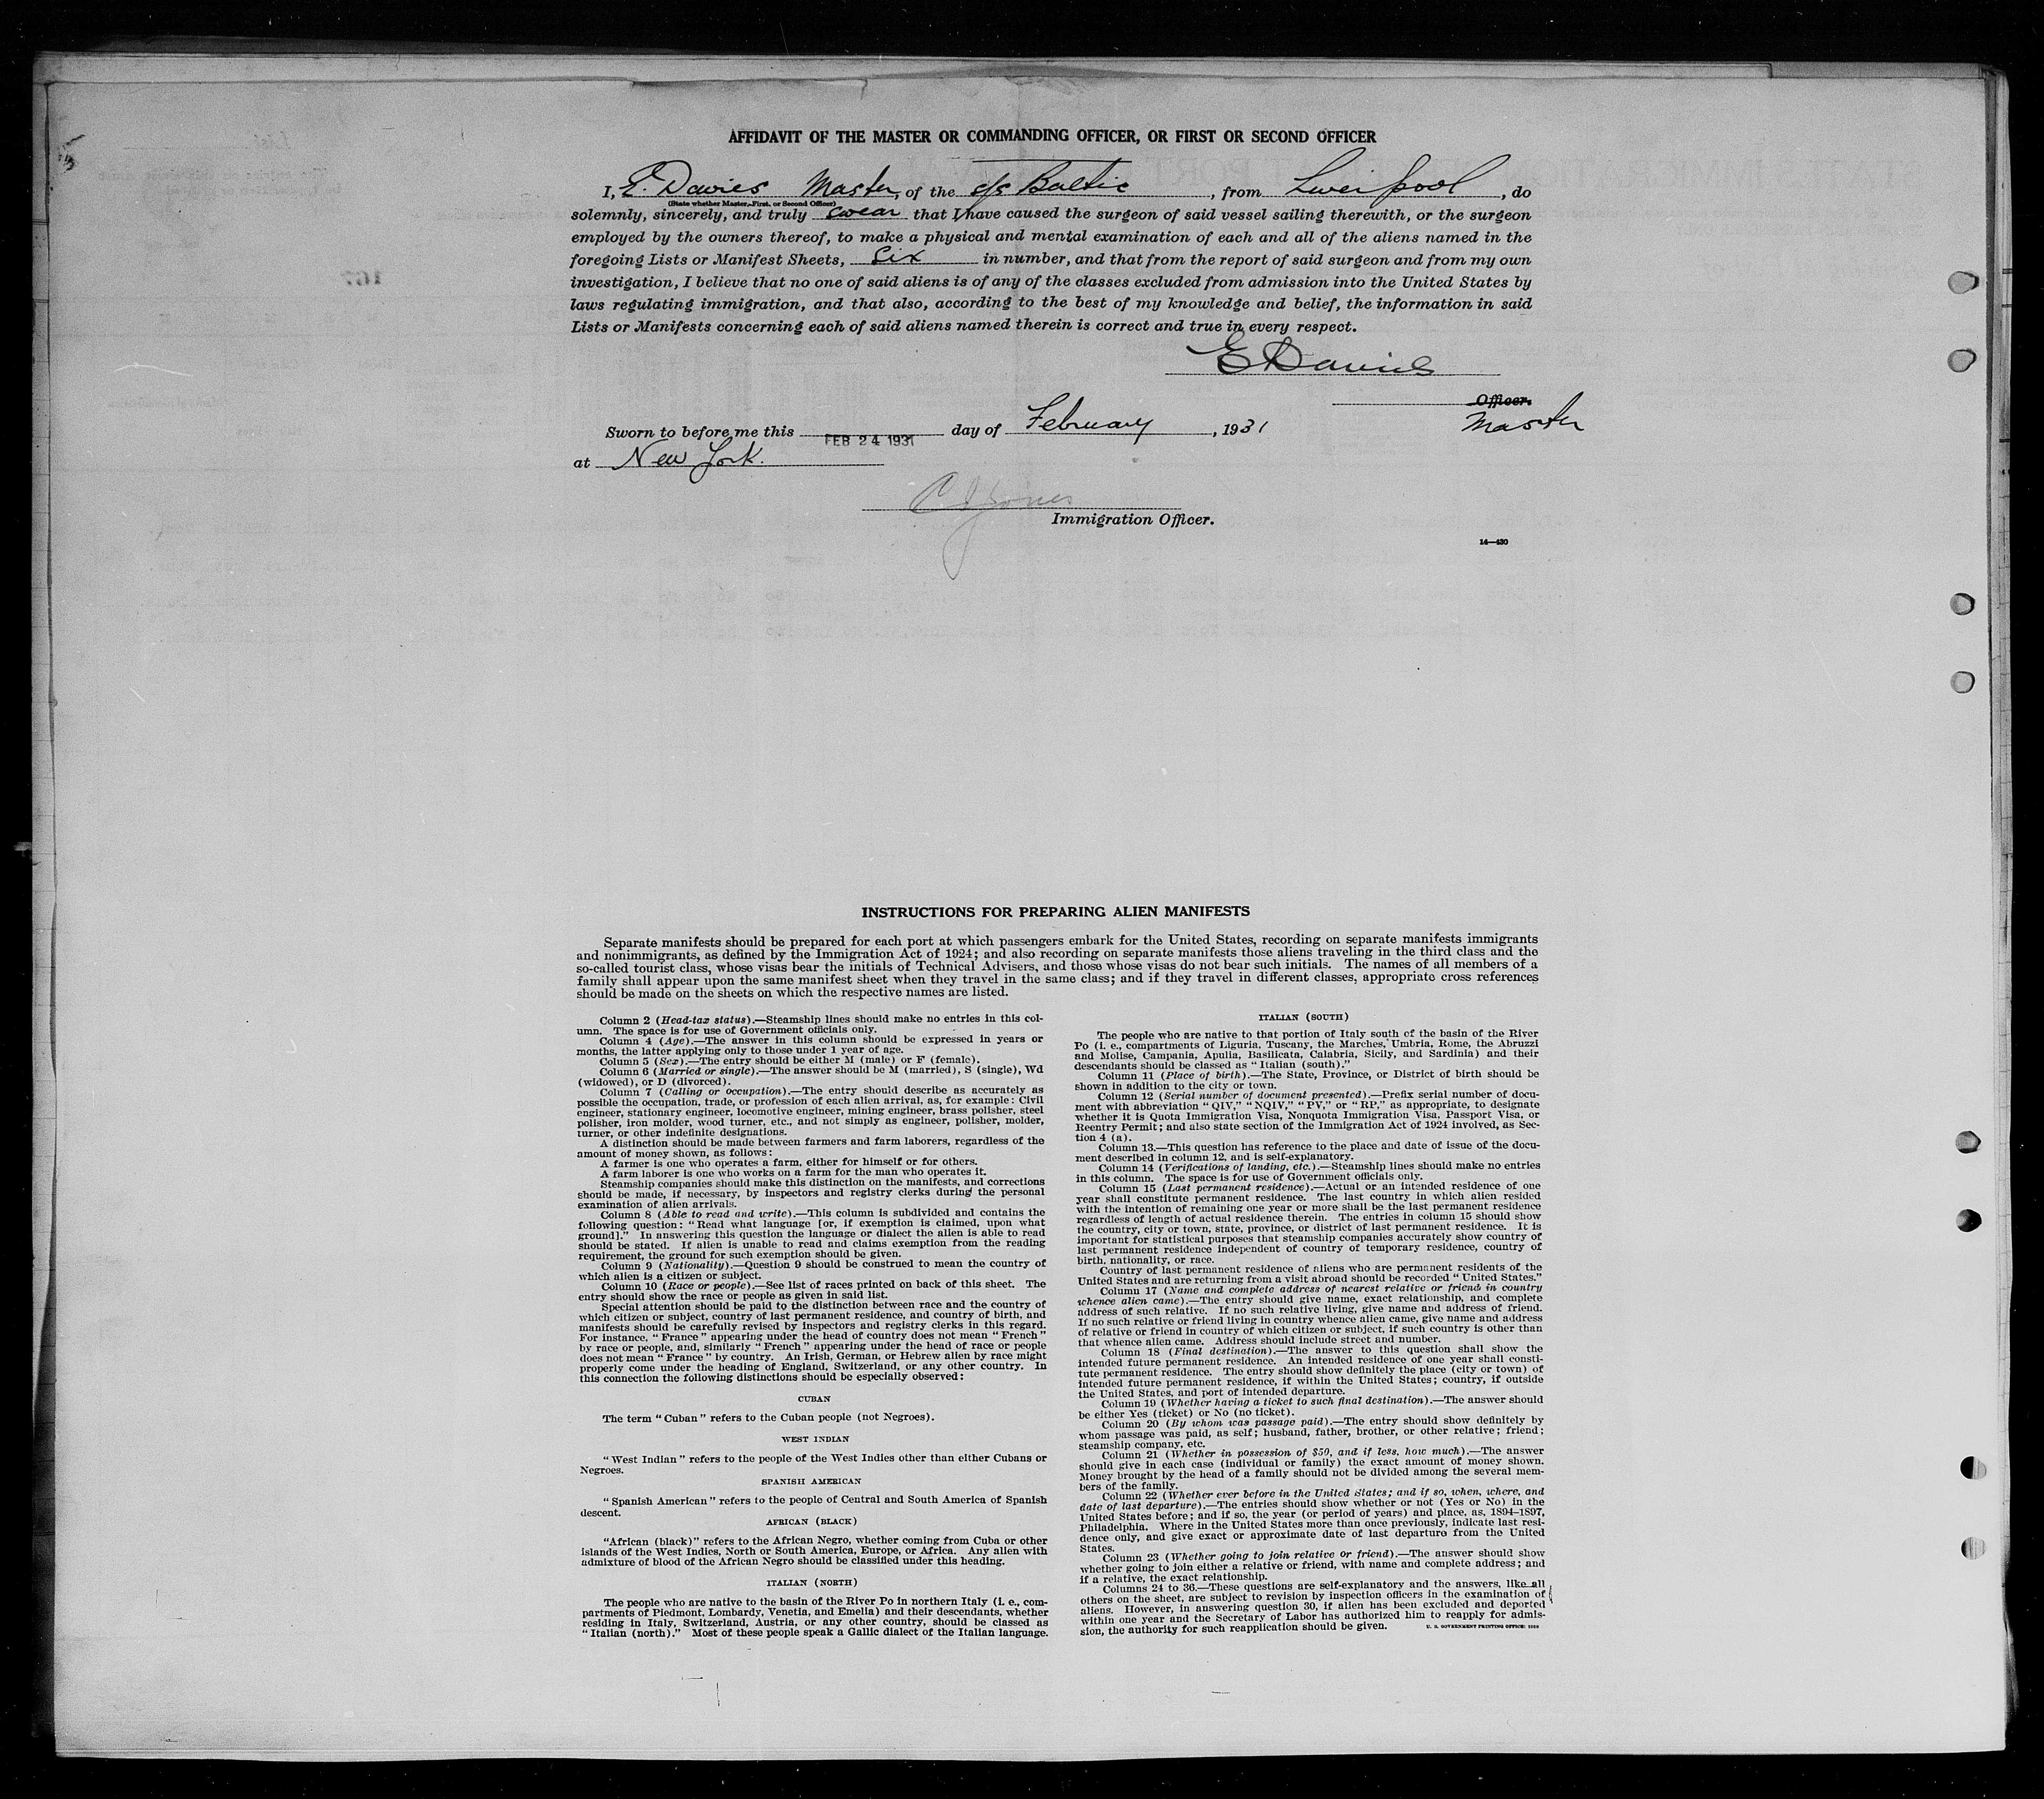 AFFIDAVIT OF THE MASTER OR COMMANDING OFFICER, OR FIRST OR SECOND OFFICER
I, E. Davies Master, of the s/s Baltic, from Liverpool, do
(State whether Master, First, or Second Officer)
solemnly, sincerely, and truly swear that I have caused the surgeon of said vessel sailing therewith, or the surgeon
employed by the owners thereof, to make a physical and mental examination of each and all of the aliens named in the
foregoing Lists or Manifest Sheets, Six in number, and that from the report of said surgeon and from my own
investigation, I believe that no one of said aliens is of any of the classes excluded from admission into the United States by
laws regulating immigration, and that also, according to the best of my knowledge and belief, the information in said
Lists or Manifests concerning each of said aliens named therein is correct and true in every respect.
E Davies
Officer.
Master
Sworn to before me this FEB 24 1931 day of February, 1931
at New York.
Immigration Officer.
14—430
INSTRUCTIONS FOR PREPARING ALIEN MANIFESTS
Separate manifests should be prepared for each port at which passengers embark for the United States, recording on separate manifests immigrants
and nonimmigrants, as defined by the Immigration Act of 1924; and also recording on separate manifests those aliens traveling in the third class and the
so-called tourist class, whose visas bear the initials of Technical Advisers, and those whose visas do not bear such initials. The names of all members of a
family shall appear upon the same manifest sheet when they travel in the same class; and if they travel in different classes, appropriate cross references
should be made on the sheets on which the respective names are listed.
Column 2 (Head-tax status).—Steamship lines should make no entries in this col-
umn. The space is for use of Government officials only.
Column 4 (Age).—The answer in this column should be expressed in years or
months, the latter applying only to those under 1 year of age.
Column 5 (Sex).—The entry should be either M (male) or F (female).
Column 6 (Married or single).—The answer should be M (married), S (single), Wd
(widowed), or D (divorced).
Column 7 (Calling or occupation).—The entry should describe as accurately as
possible the occupation, trade, or profession of each alien arrival, as, for example: Civil
engineer, stationary engineer, locomotive engineer, mining engineer, brass polisher, steel
polisher, iron molder, wood turner, etc., and not simply as engineer, polisher, molder,
turner, or other indefinite designations.
A distinction should be made between farmers and farm laborers, regardless of the
amount of money shown, as follows:
A farmer is one who operates a farm, either for himself or for others.
A farm laborer is one who works on a farm for the man who operates it.
Steamship companies should make this distinction on the manifests, and corrections
should be made, if necessary, by inspectors and registry clerks during the personal
examination of alien arrivals.
Column 8 (Able to read and write).—This column is subdivided and contains the
following question: "Read what language [or, if exemption is claimed, upon what
ground]." In answering this question the language or dialect the alien is able to read
should be stated. If alien is unable to read and claims exemption from the reading
requirement, the ground for such exemption should be given.
Column 9 (Nationality).—Question 9 should be construed to mean the country of
which alien is a citizen or subject.
Column 10 (Race or people).—See list of races printed on back of this sheet. The
entry should show the race or people as given in said list.
Special attention should be paid to the distinction between race and the country of
which citizen or subject, country of last permanent residence, and country of birth, and
manifests should be carefully revised by inspectors and registry clerks in this regard.
For instance, "France" appearing under the head of country does not mean "French"
by race or people, and, similarly "French" appearing under the head of race or people
does not mean "France" by country. An Irish, German, or Hebrew alien by race might
properly come under the heading of England, Switzerland, or any other country. In
this connection the following distinctions should be especially observed:
CUBAN
The term "Cuban" refers to the Cuban people (not Negroes).
WEST INDIAN
"West Indian" refers to the people of the West Indies other than either Cubans or
Negroes.
SPANISH AMERICAN
"Spanish American" refers to the people of Central and South America of Spanish
descent.
AFRICAN (BLACK)
"African (black)" refers to the African Negro, whether coming from Cuba or other
islands of the West Indies, North or South America, Europe, or Africa. Any alien with
admixture of blood of the African Negro should be classified under this heading.
ITALIAN (NORTH)
The people who are native to the basin of the River Po in northern Italy (i. e., com-
partments of Piedmont, Lombardy, Venetia, and Emelia) and their descendants, whether
residing in Italy, Switzerland, Austria, or any other country, should be classed as
"Italian (north)." Most of these people speak a Gallic dialect of the Italian language.
ITALIAN (SOUTH)
The people who are native to that portion of Italy south of the basin of the River
Po (i. e., compartments of Liguria, Tuscany, the Marches, Umbria, Rome, the Abruzzi
and Molise, Campania, Apulia, Basilicata, Calabria, Sicily, and Sardinia) and their
descendants should be classed as "Italian (south)."
Column 11 (Place of birth).—The State, Province, or District of birth should be
shown in addition to the city or town.
Column 12 (Serial number of document presented).—Prefix serial number of docu-
ment with abbreviation "QIV," "NQIV," "PV," or "RP," as appropriate, to designate
whether it is Quota Immigration Visa, Nonquota Immigration Visa, Passport Visa, or
Reentry Permit; and also state section of the Immigration Act of 1924 involved, as Sec-
tion 4 (a).
Column 13.—This question has reference to the place and date of issue of the docu-
ment described in column 12, and is self-explanatory.
Column 14 (Verifications of landing, etc.).—Steamship lines should make no entries
in this column. The space is for use of Government officials only.
Column 15 (Last permanent residence).—Actual or an intended residence of one
year shall constitute permanent residence. The last country in which alien resided
with the intention of remaining one year or more shall be the last permanent residence
regardless of length of actual residence therein. The entries in column 15 should show
the country, city or town, state, province, or district of last permanent residence. It is
important for statistical purposes that steamship companies accurately show country of
last permanent residence independent of country of temporary residence, country of
birth, nationality, or race.
Country of last permanent residence of aliens who are permanent residents of the
United States and are returning from a visit abroad should be recorded "United States."
Column 17 (Name and complete address of nearest relative or friend in country
whence alien came).—The entry should give name, exact relationship, and complete
address of such relative. If no such relative living, give name and address of friend.
If no such relative or friend living in country whence alien came, give name and address
of relative or friend in country of which citizen or subject, if such country is other than
that whence alien came. Address should include street and number.
Column 18 (Final destination).—The answer to this question shall show the
intended future permanent residence. An intended residence of one year shall consti-
tute permanent residence. The entry should show definitely the place (city or town) of
intended future permanent residence, if within the United States; country, if outside
the United States, and port of intended departure.
Column 19 (Whether having a ticket to such final destination).—The answer should
be either Yes (ticket) or No (no ticket).
Column 20 (By whom was passage paid).—The entry should show definitely by
whom passage was paid, as self; husband, father, brother, or other relative; friend;
steamship company, etc.
Column 21 (Whether in possession of $50, and if less, how much).—The answer
should give in each case (individual or family) the exact amount of money shown.
Money brought by the head of a family should not be divided among the several mem-
bers of the family.
Column 22 (Whether ever before in the United States; and if so, when, where, and
date of last departure).—The entries should show whether or not (Yes or No) in the
United States before; and if so, the year (or period of years) and place, as, 1894-1897,
Philadelphia. Where in the United States more than once previously, indicate last resi-
dence only, and give exact or approximate date of last departure from the United
States.
Column 23 (Whether going to join relative or friend).—The answer should show
whether going to join either a relative or friend, with name and complete address; and
if a relative, the exact relationship.
Columns 24 to 36.—These questions are self-explanatory and the answers, like all
others on the sheet, are subject to revision by inspection officers in the examination of
aliens. However, in answering question 30, if alien has been excluded and deported
within one year and the Secretary of Labor has authorized him to reapply for admis-
sion, the authority for such reapplication should be given.
U. S. GOVERNMENT PRINTING OFFICE: